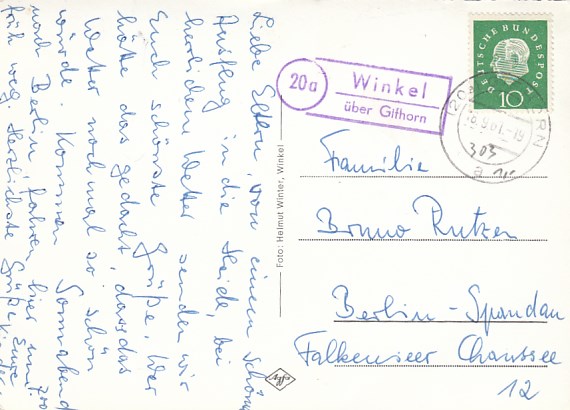 Liebe Eltern, von einem schönen
Ausflug in die Heide, bei
herrlichem Wetter senden wir
Euch schönste Grüße. Wer
hätte das gedacht, dass das
Wetter noch mal so schön
würde. Kommen Sonnabend
nach Berlin, fahren hier um 7 00
früh weg. Herzlichste Grüße Eure
Foto: Helmut Winter, Winkel
20a
Winkel
über Gifhorn
DEUTSCHE BUNDESPOST
10
(20a
ORN
9.61.-19
303
a
Familie
Bruno Rutzen
Berlin-Spandau
Falkenseer Chaussee
12
Agfa